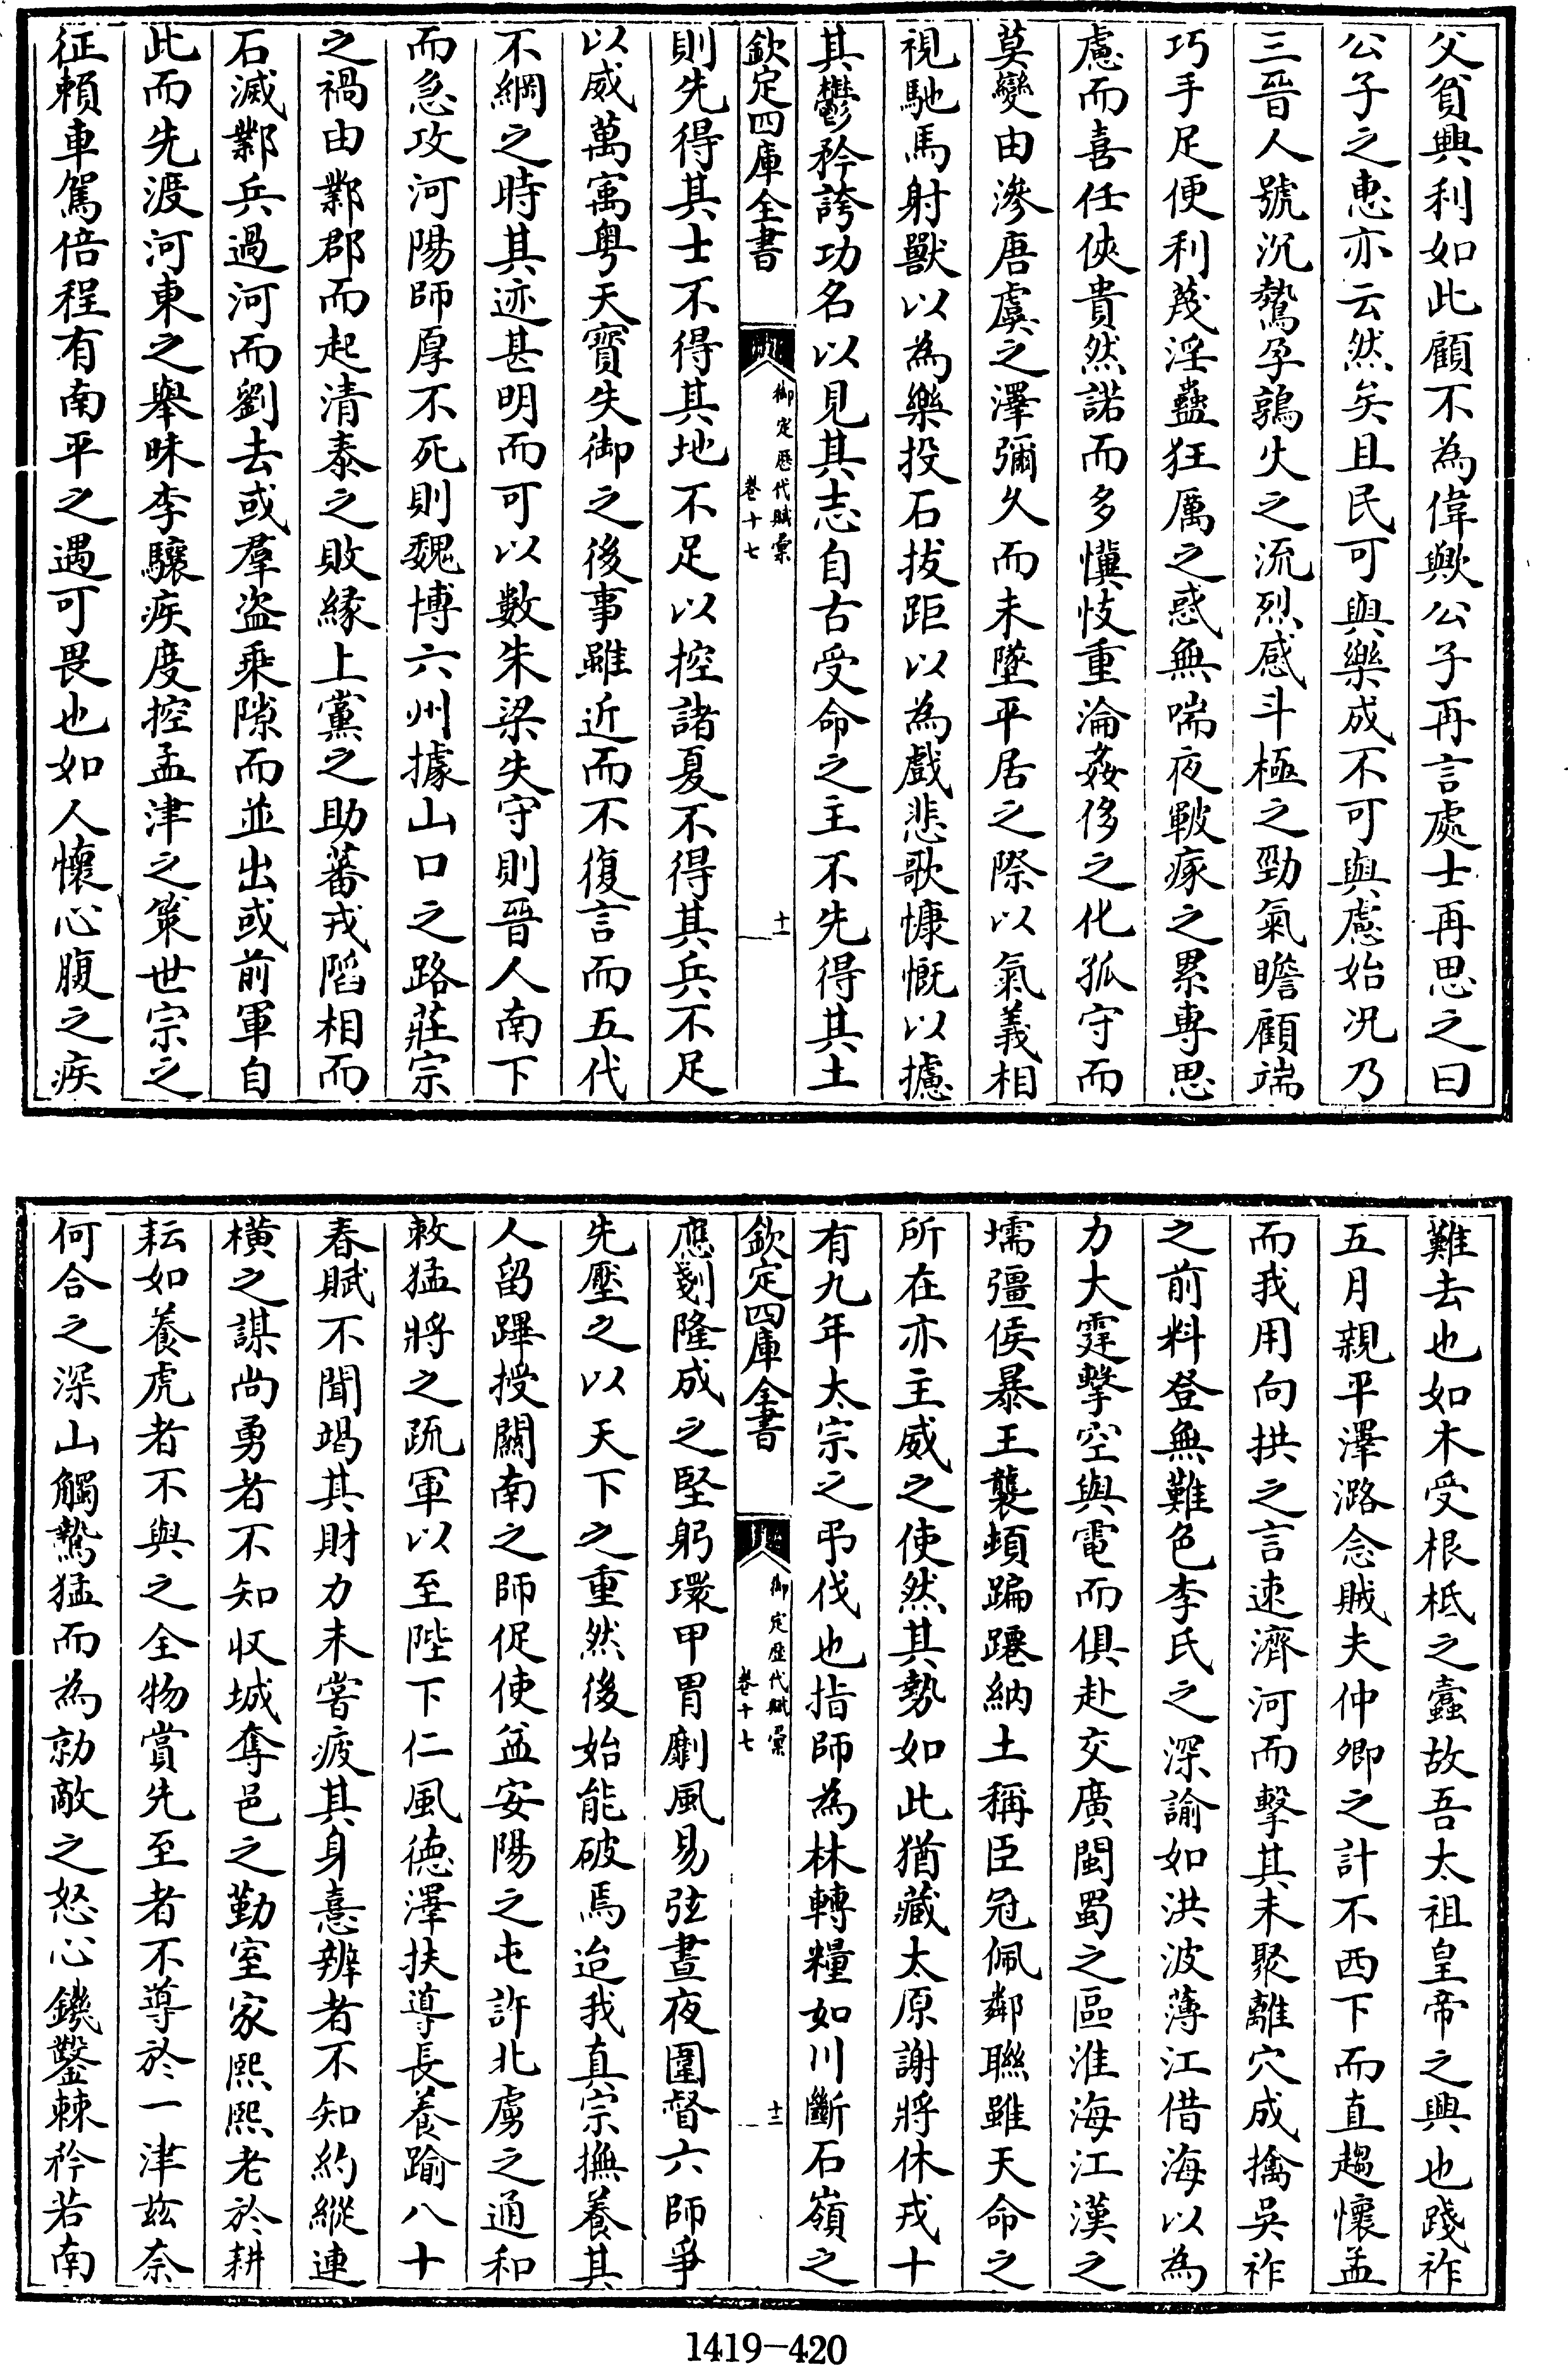 父貧興利如此顧不為偉歟公子再言處士再思之曰
公子之惠亦云然矣且民可與樂成不可與慮始况乃
三晉人號沉鷙孕鶉火之流烈感斗極之勁氣瞻顧端
巧手足便利蔑淫蠱狂厲之惑無喘夜皸瘃之累專思
慮而喜任俠貴然諾而多懻忮重淪姦侈之化孤守而
莫變由滲唐虞之澤彌久而未墜平居之際以氣義相
視馳馬射獸以為樂投石拔距以為戲悲歌慷慨以攄
其鬱矜誇功名以見其志自古受命之主不先得其土
欽定四庫全書
御定歷代賦彙
卷十七
十一
則先得其士不得其地不足以控諸夏不得其兵不足
以威萬寓粤天寳失御之後事雖近而不復言而五代
不綱之時其迹甚明而可以數朱梁失守則晉人南下
而急攻河陽師厚不死則魏博六州據山口之路莊宗
之禍由鄴郡而起清泰之敗縁上黨之助蕃戎䧟相而
石滅鄴兵過河而劉去或羣盜乘隙而並出或前軍自
此而先渡河東之舉昧李驤疾度控孟津之策世宗之
征賴車駕倍程有南平之遇可畏也如人懷心腹之疾
難去也如木受根柢之蠧故吾太祖皇帝之興也踐祚
五月親平澤潞念賊夫仲卿之計不西下而直趨懷孟
而我用向拱之言速濟河而擊其未聚離穴成擒吳祚
之前料登無難色李氏之深諭如洪波薄江借海以為
力大霆擊空與電而俱赴交廣閩蜀之區淮海江漢之
壖彊侯暴王襲頓蹁躚納土稱臣冠佩鄰聯雖天命之
所在亦主威之使然其勢如此猶藏太原謝將休戎十
有九年太宗之弔伐也指師為林轉糧如川斷石嶺之
欽定四庫全書
御定歷代賦彙
卷十七
十二
應剗隆成之堅躬環甲胄劘風易弦晝夜圍督六師爭
先壓之以天下之重然後始能破焉迨我真宗撫養其
人留蹕授關南之師促使益安陽之屯許北虜之通和
敕猛將之疏軍以至陛下仁風徳澤扶導長養踰八十
春賦不聞竭其財力未嘗疲其身憙辨者不知約縱連
横之謀尚勇者不知收城奪邑之勤室家熙熙老於耕
耘如養虎者不與之全物賞先至者不導於一津兹奈
何合之深山觸鷙猛而為勍敵之怒心鐖鑿棘矜若南
1419-420